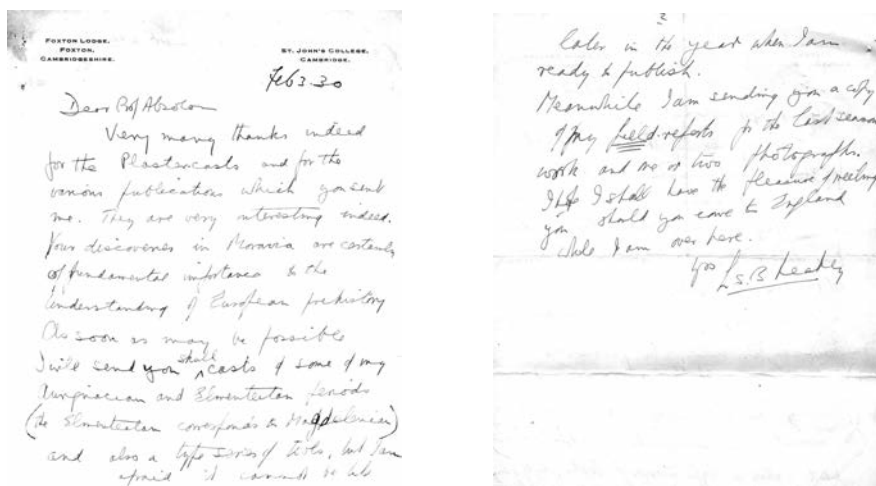 FOXTON LODGE,
FOXTON,
CAMBRIDGESHIRE.
ST. JOHN'S COLLEGE,
CAMBRIDGE.
Feb 3. 30
Dear Prof Absolon
Very many thanks indeed
for the Plastercasts and for the
various publications which you sent
me. They are very interesting indeed.
Your discoveries in Moravia are certainly
of fundamental importance to the
understanding of European prehistory
As soon as may be possible
I will send you skull casts of some of my
Aurignacian and Elmenteitan periods
(the Elmenteitan corresponds to Magdelenian)
and also a type series of tools, but I am
afraid it cannot be till
2
later in the year when I am
ready to publish.
Meanwhile I am sending you a copy
of my field-reports for the last season
work and one or two photographs.
I hope I shall have the pleasure of meeting
you should you come to England
while I am over here.
yrs L.S.B Leakey